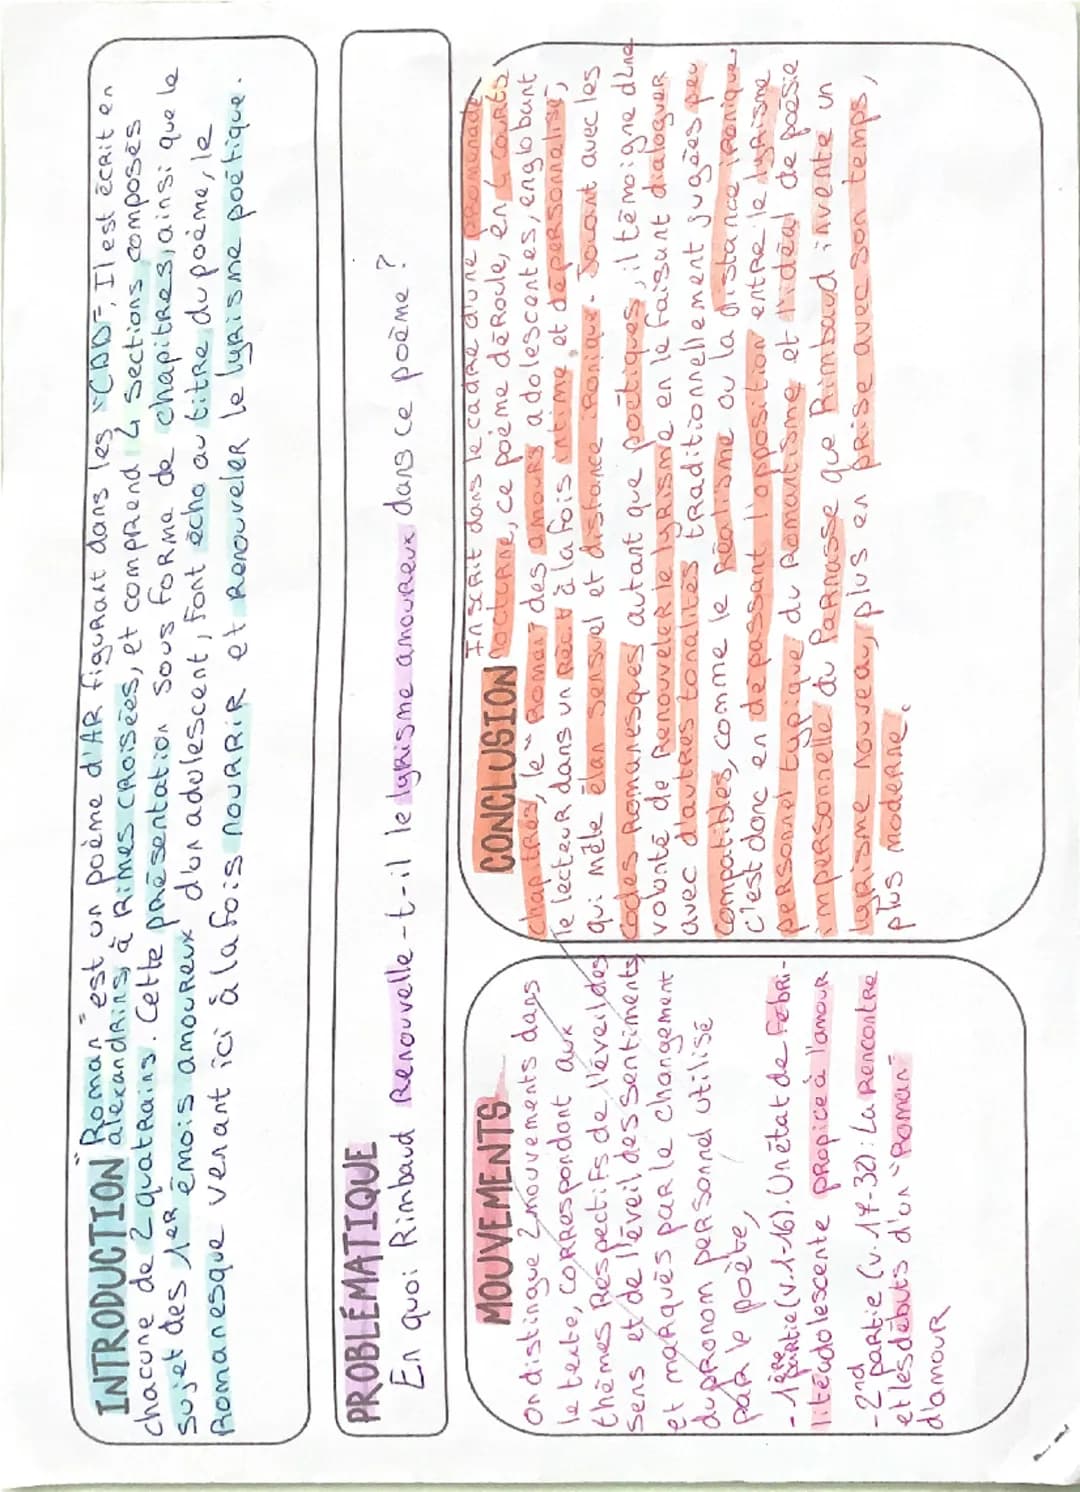 INTRODUCTION "Roman" est un poème d'AR figurant dans les "CDD". Il est écrit en
alexandrins, à rimes croisées, et comprend 4 sections composés
chacune de 2 quatrains. Cette présentation sous forme de chapitres, ainsi que le
sujet des 1er émois amoureux d'un adulescent, font écho au titre du poème, le
Romanesque venant ici à la fois nourrir et renouveler le lyrisme poétique.
PROBLÉMATIQUE
En quoi Rimbaud Renouvelle-t-il le lyrisme amoureux dans ce poème ?
MOUVEMENTS
On distingue 2 mouvements dans
le texte, correspondant aux
thèmes Respectifs de l'éveil des
sens et de l'éveil des sentiments,
et marqués par le changement
du pronom personnel utilisé
par le poète,
- 1ère partie (v.1-16). Un état de fébri-
litéadolescente propice à l'amour
- 2nd partie (v.17-32) : La Rencontre
et les débuts d'un "Roman"
d'amour
CONCLUSION Inscrit dans le cadre d'une promenade
nocturne, ce poème déroule, en 4 courts
chapitres, le "Roman" des amours adolescentes, englobant
le lecteur dans un récit à la fois intime et dépersonnalisé,
qui mêle élan sensuel et distance ironique. Jouant avec les
codes Romanesques autant que poétiques, il témoigne d'une
volonté de Renouveler le lyrisme en le faisant dialoguer
avec d'autres tonalités traditionnellement jugées peu
compatibles, comme le réalisme ou la distance ironique.
c'est donc en dépassant l'opposition entre le lyrisme
personnel typique du Romantisme et l'idéal de poésie
impersonnelle du Parnasse que Rimbaud invente un
lyrisme nouveau, plus en prise avec son temps,
plus moderne.